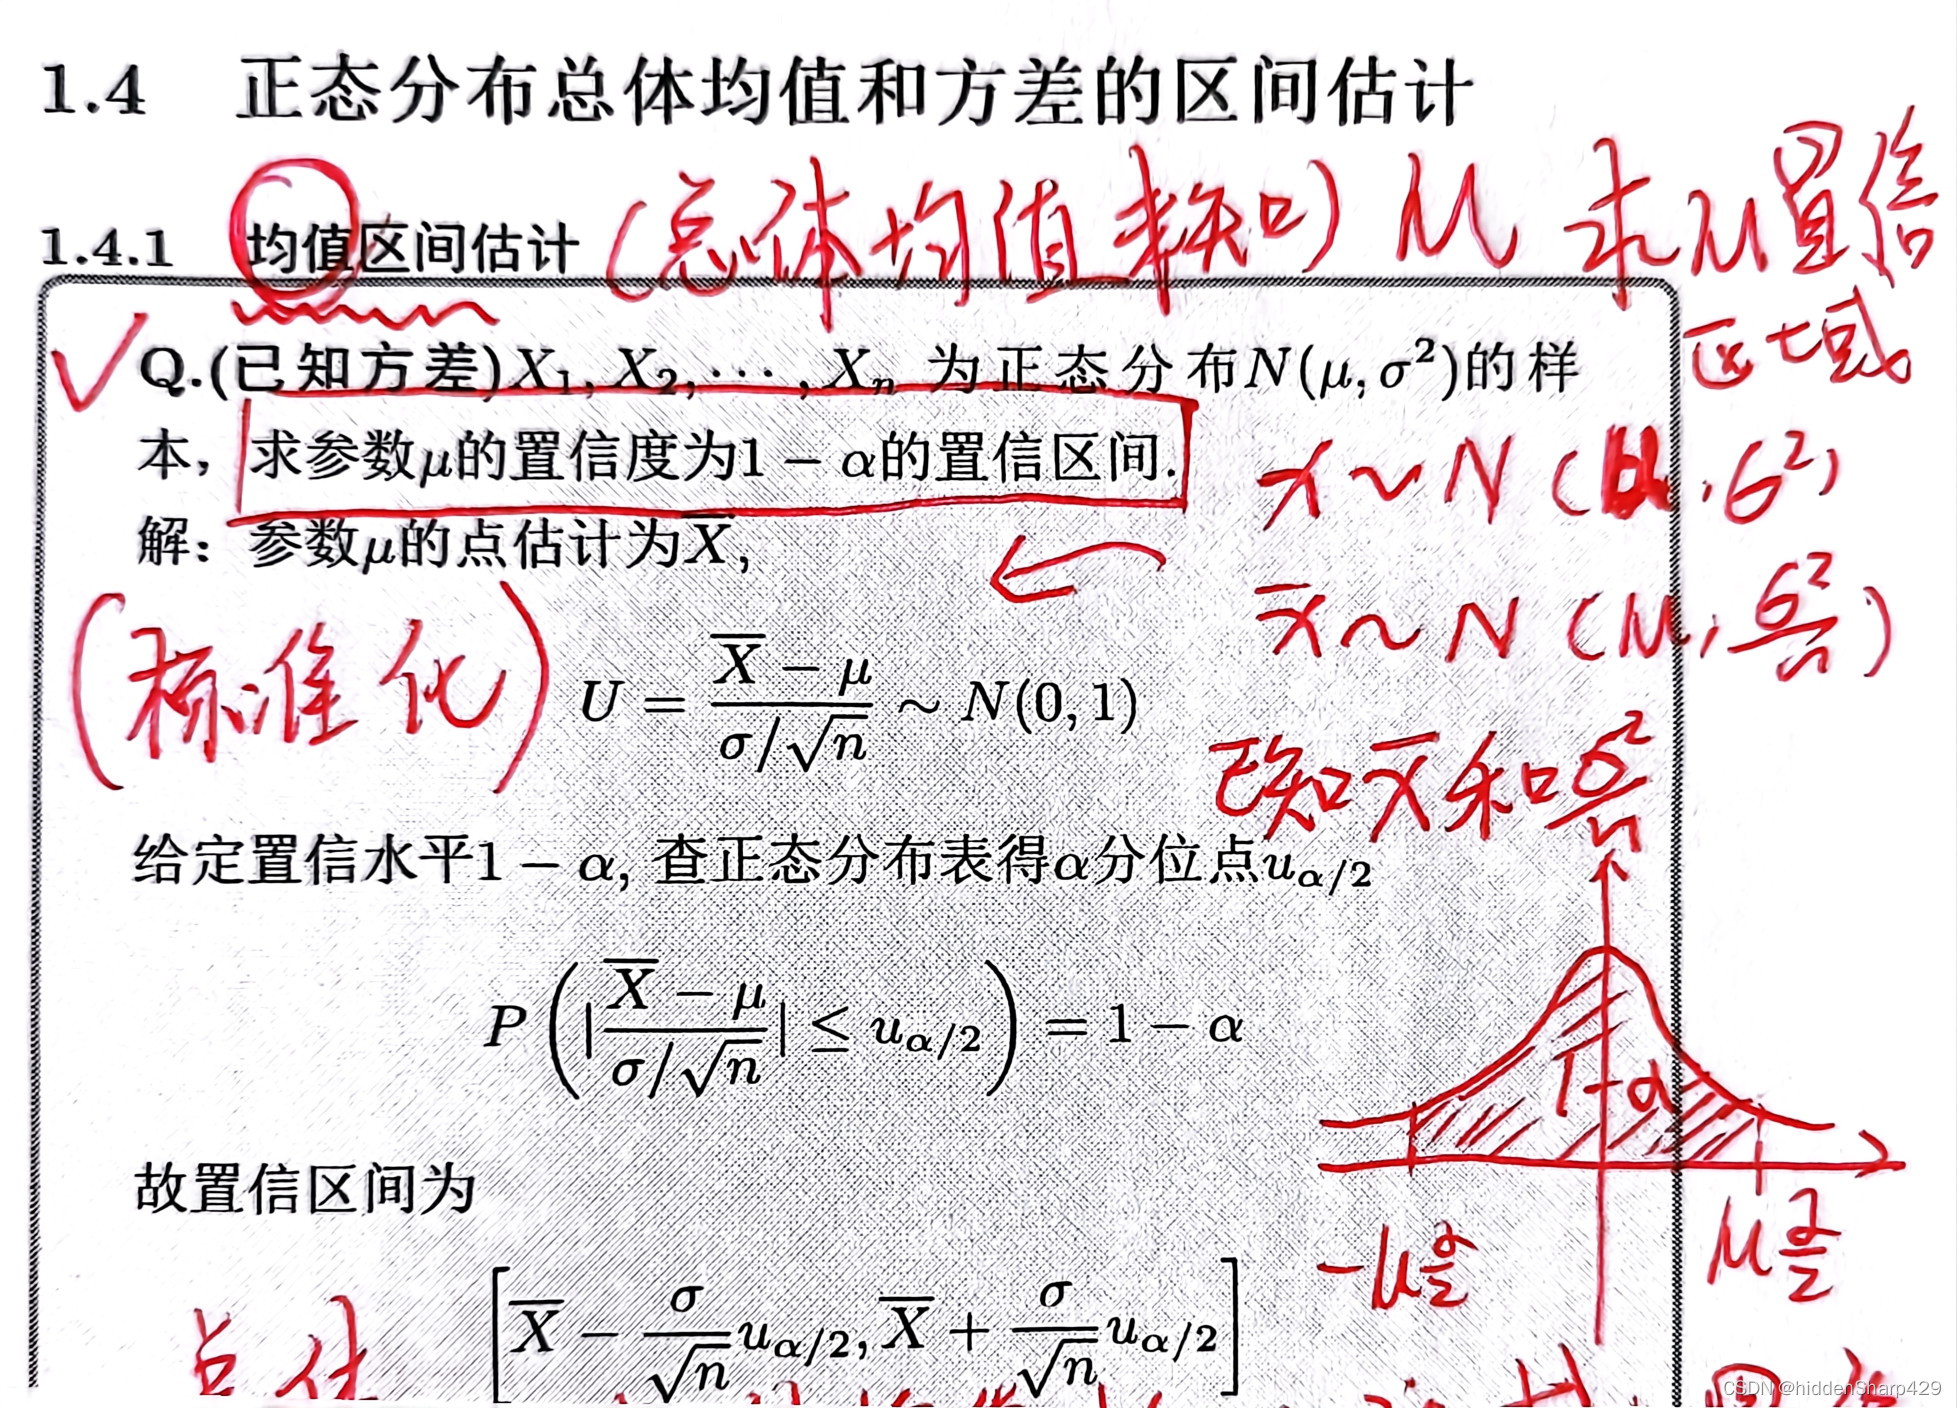 1.4 正态分布总体均值和方差的区间估计
1.4.1 均值区间估计 (总体均值未知) μ 求μ置信
区域
Q.(已知方差)X₁, X₂, ⋯ , Xₙ 为正态分布N(μ, σ²)的样
本, 求参数μ的置信度为1 − α的置信区间.
x ~ N (μ, σ²)
解: 参数μ的点估计为X̅,
x̅ ~ N (μ, σ²/n)
(标准化) U = (X̅ − μ)/(σ/√n) ∼ N(0, 1)
已知x̅和σ²/n
给定置信水平1 − α, 查正态分布表得α分位点u_{α/2}
P(|(X̅ − μ)/(σ/√n)| ≤ u_{α/2}) = 1 − α
1-α
故置信区间为
-μ α/2 μ α/2
[X̅ − σ/√n u_{α/2}, X̅ + σ/√n u_{α/2}]
点估
CSDN @hiddenSharp429